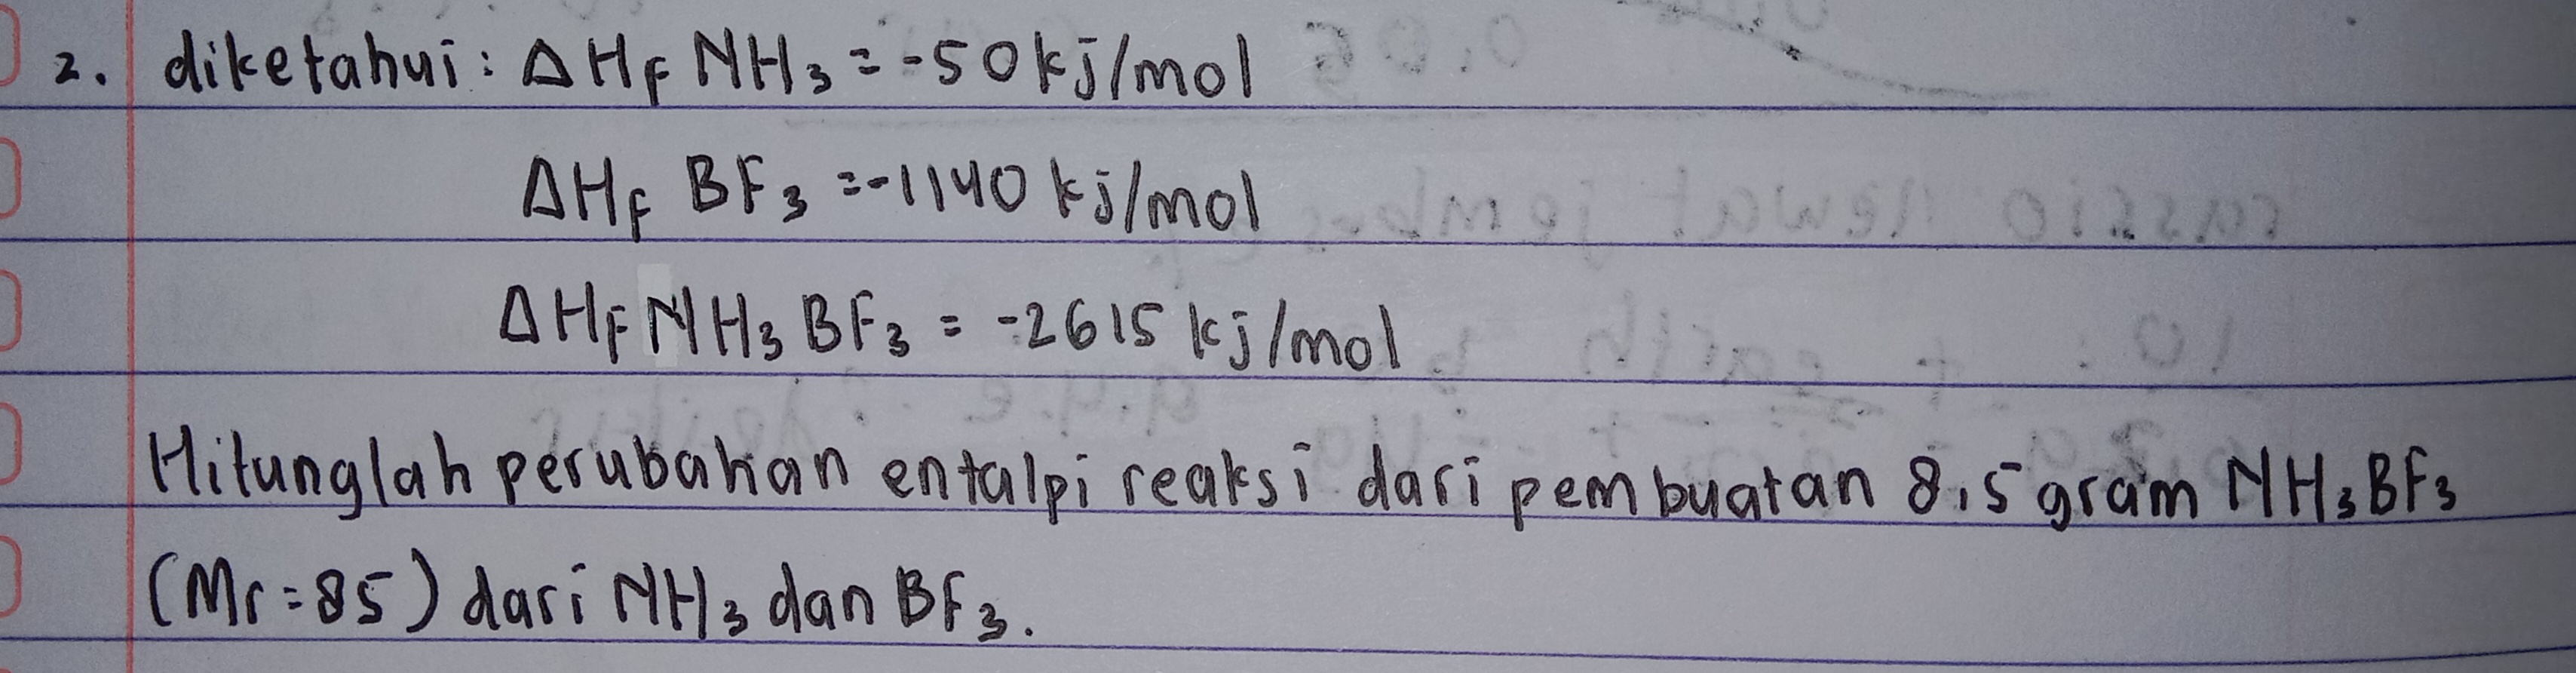 2. diketahui : ΔHF NH3 = -50 kj/mol
ΔHF BF3 = -1140 kj/mol
ΔHF NH3 BF3 = -2615 kj/mol
Hitunglah perubahan entalpi reaksi dari pembuatan 8,5 gram NH3BF3
(Mr = 85) dari NH3 dan BF3.